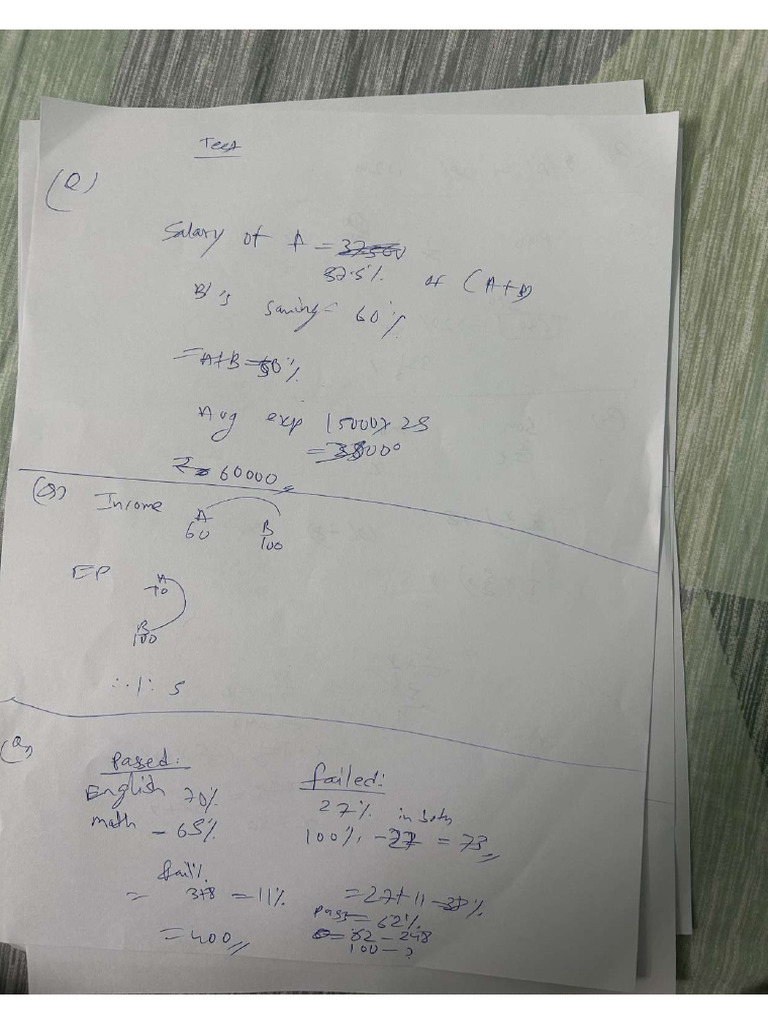 Test
(Q)
Salary of A = 37500
37.5% of (A+B)
B's saving = 60%
= A+B = 50%
Avg exp 15000 x 25
= 38000
60000
(Q) Income A B
60 100
EP A
70
B
100
∴ 1 : 5
(Q)
Passed: failed:
English 70% 27% in both
math - 65% 100% - 27 = 73
fail
= 378 = 11% = 27+11 = 37%
pass = 62%
= 400 = 62 - 248
100 - ?